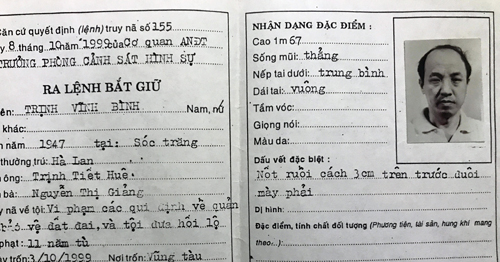 Căn cứ quyết định (lệnh) truy nã số 155
y 8 tháng 10 năm 1999 của Cơ quan ANĐT
TRƯỞNG PHÒNG CẢNH SÁT HÌNH SỰ
RA LỆNH BẮT GIỮ
ên: TRỊNH VĨNH BÌNH Nam, nữ
khác:
n năm 1947 tại: Sóc trăng
thường trú: Hà Lan
n ông: Trịnh Tiết Huê.
n bà: Nguyễn Thị Giảng
y nã về tội: Vi phạm các qui định về quản
về đất đai, và tội đưa hối lộ
phạt: 11 năm tù
ày trốn: 3/10/1999 Nơi trốn: Vũng tàu
NHẬN DẠNG ĐẶC ĐIỂM :
Cao 1m 67
Sống mũi: thẳng
Nếp tai dưới: trung bình
Dái tai: vuông
Tầm vóc:
Giọng nói:
Màu da:
Dấu vết đặc biệt :
Nốt ruồi cách 3cm trên trước đuôi
mày phải
Dị hình:
Đặc điểm, tính chất đối tượng (Phương tiện, tài sản, hung khí mang
theo...)